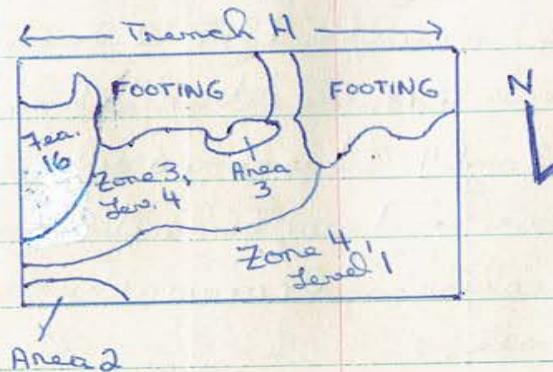 Trench H
FOOTING
FOOTING
N
Fea.
16
Zone 3,
Leve. 4
Area
3
Zone 4,
Level 1
Area 2